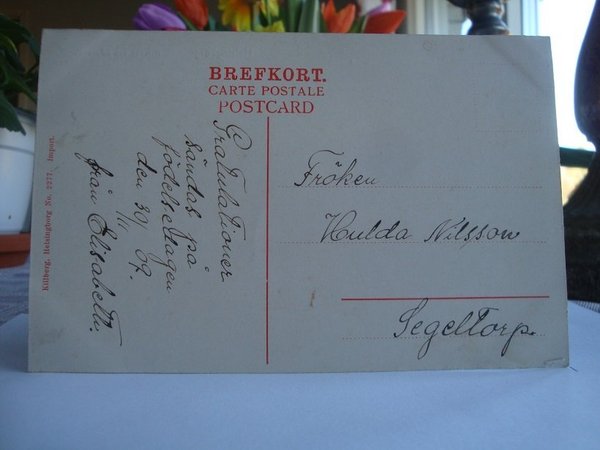 BREFKORT.
CARTE POSTALE
POSTCARD
Gratulationer
sändas på
födelsedagen
den 30/1 09.
från Elisabeth.
Fröken
Hulda Nilsson
Segeltorp.
Killberg, Helsingborg No. 2277. Import.